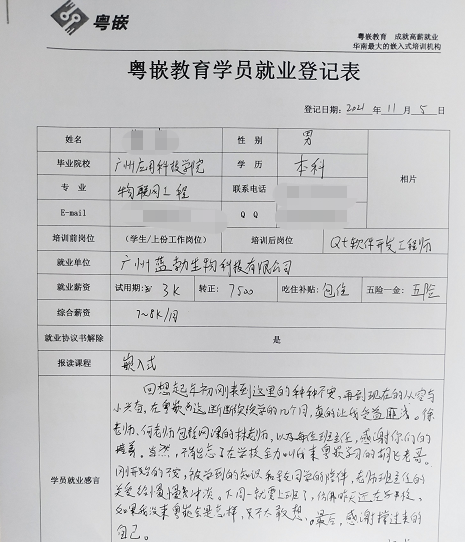 粤嵌
粤嵌教育 成就高薪就业
华南最大的嵌入式培训机构
粤嵌教育学员就业登记表
登记日期：2021 年 11 月 5 日
姓名 性 别 男
毕业院校 广州应用科技学院 学 历 本科
相片
专 业 物联网工程 联系电话
E-mail Q Q
培训前岗位 （学生/上份工作岗位） 培训后岗位 Qt软件开发工程师
就业单位 广州蓝勃生物科技有限公司
就业薪资 试用期: 3K 转正: 7500 吃住补贴: 包住 五险一金: 五险
综合薪资 7~8K/月
就业协议书解除 是
报读课程 嵌入式
回想起年初刚来到这里的种种不安，再到现在的从容与
小兴奋，在粤嵌断断续续学的几个月，真的让我受益匪浅。徐
老师、何老师包括网课的林老师，以及每位班主任，感谢你们的
当然，不能忘了在学校全力叫我来粤嵌的胡
刚开始的不安，被学到的知识和同学的陪伴，老师班主任的
关爱给慢慢冲淡。下周一就要上班了，仿佛昨天还在
学员就业感言
如果我没来粤嵌会是怎样，只不太敢想。最后，感谢撑过来的
自己。